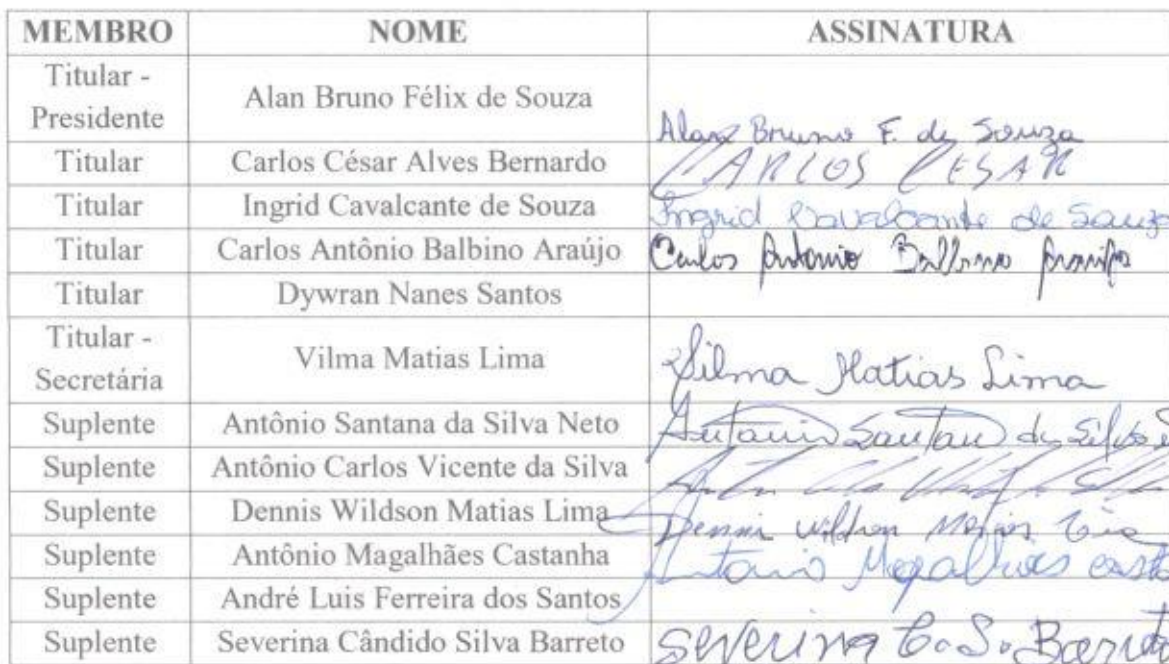 MEMBRO NOME ASSINATURA
Titular -
Presidente Alan Bruno Félix de Souza Alan Bruno F. de Souza
Titular Carlos César Alves Bernardo CARLOS CESAR
Titular Ingrid Cavalcante de Souza Ingrid Cavalcante de Souza
Titular Carlos Antônio Balbino Araújo Carlos Antonio Balbino Araujo
Titular Dywran Nanes Santos
Titular -
Secretária Vilma Matias Lima Vilma Matias Lima
Suplente Antônio Santana da Silva Neto Antonio Santana da Silva
Suplente Antônio Carlos Vicente da Silva
Suplente Dennis Wildson Matias Lima Dennis Wildson Matias Lima
Suplente Antônio Magalhães Castanha Antonio Magalhães casta
Suplente André Luis Ferreira dos Santos
Suplente Severina Cândido Silva Barreto Severina C. S. Barreto